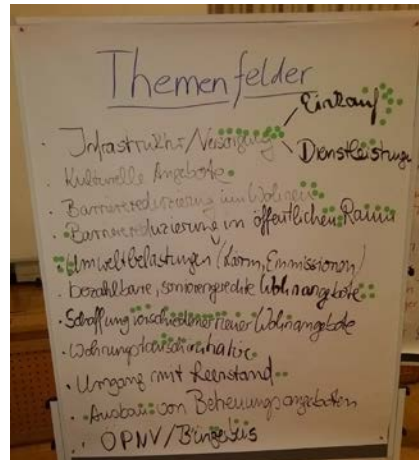 Themenfelder
Einkauf
· Infrastruktur/Versorgung
Dienstleistungen
· Kulturelle Angebote
· Barrierereduzierung im Wohnen
· Barrierereduzierung im öffentlichen Raum
· Umweltbelastungen (Lärm, Emmissionen)
· bezahlbare, seniorengerechte Wohnangebote
· Schaffung verschiedener neuer Wohnangebote
· Umgang mit Leerstand
· Ausbau von Betreuungsangeboten
· ÖPNV/Bürgerbus